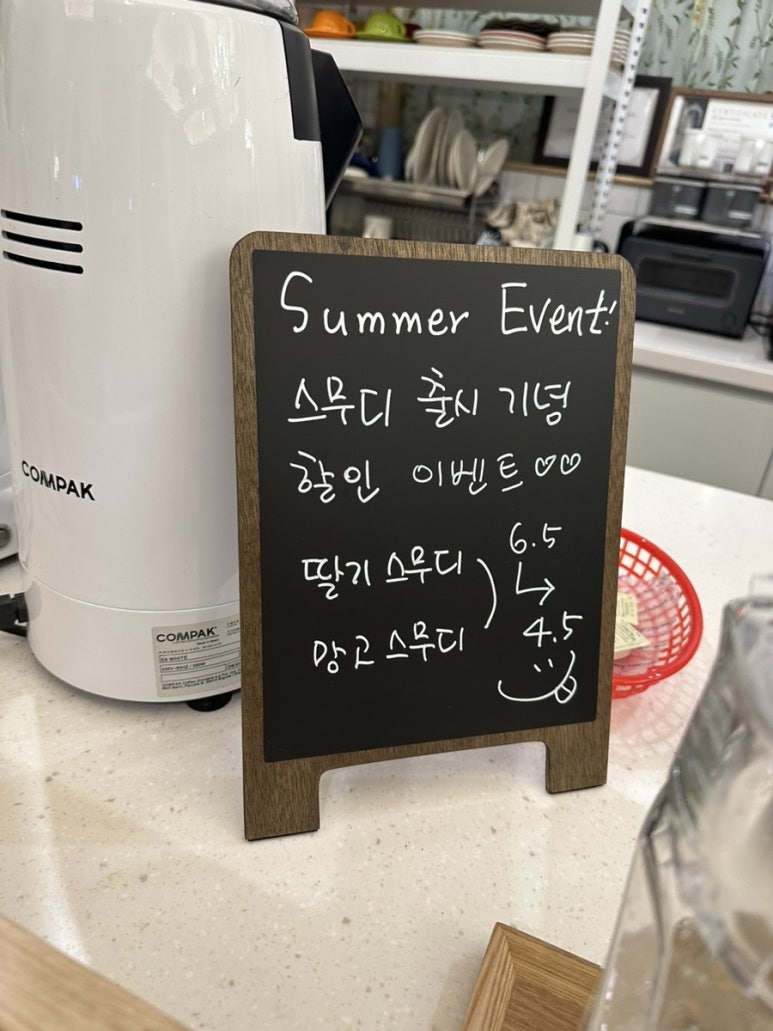 Summer Event!
스무디 출시 기념
할인 이벤트♡♡
딸기 스무디
망고 스무디
6.5
↳
4.5
COMPAK
COMPAK